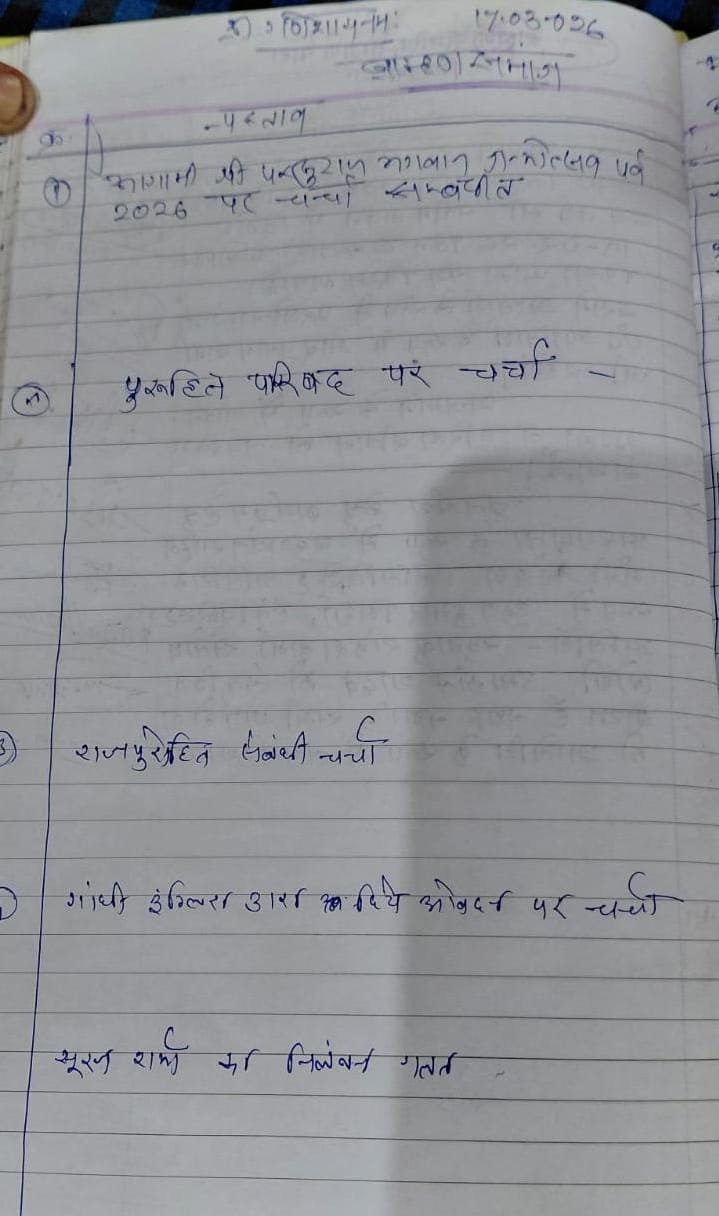 17.03.026
ब्राम्हण समाज
क्र. प्रस्ताव
① आगामी श्री परशुराम भगवान जन्मोत्सव पर्व
2026 पर चर्चा सम्बंधीत
② पुरूहित परिषद पर चर्चा -
3) राजपुरोहित संबंधी चर्चा
गांधी इंग्लिश द्वारा दिये आवेदन पर चर्चा
सूरज शर्मा का निलंबन गलत -